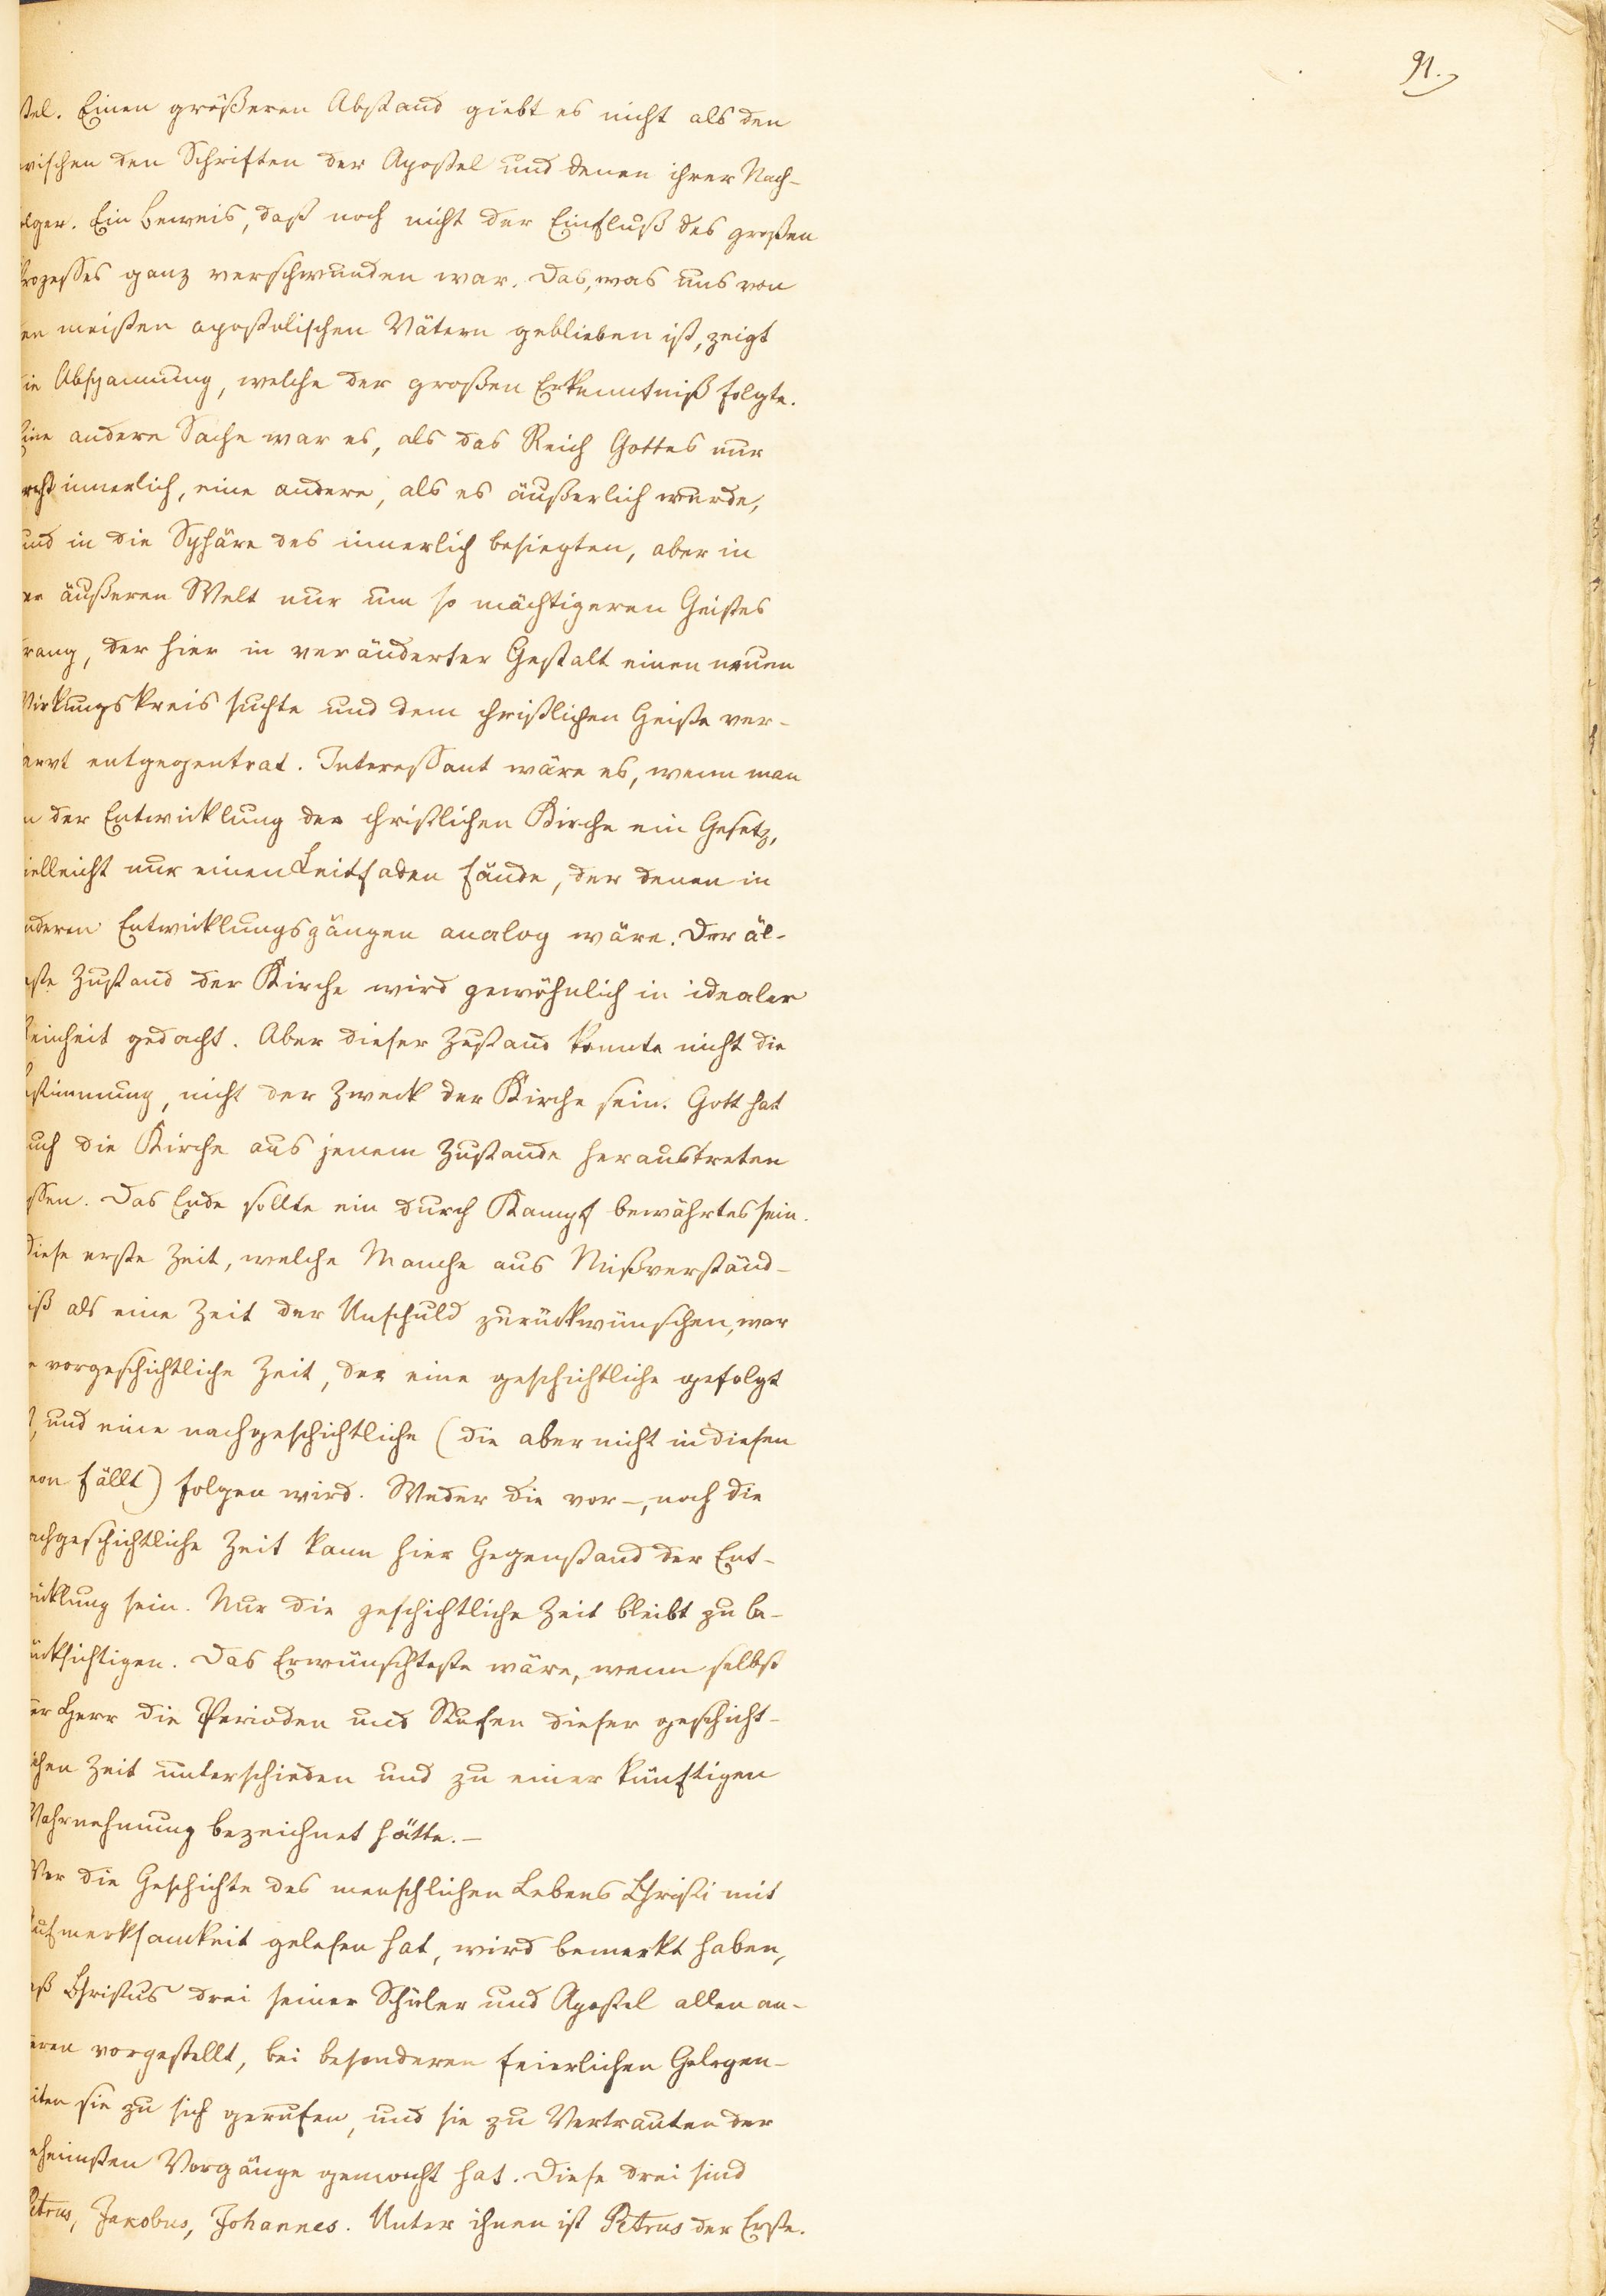 91.
stel. Einen größeren Abstand giebt es nicht als den
wischen den Schriften der Apostel und denen ihrer Nach-
olger. Ein Beweis, daß noch nicht der Einfluß des großen
rozesses ganz verschwunden war. Das, was uns von
en meisten apostolischen Vätern geblieben ist, zeigt
ie Abspannung, welche der großen Erkenntniß folgte.
Eine andere Sache war es, als das Reich Gottes nur
erst innerlich, eine andere, als es äußerlich wurde,
und in die Sphäre des innerlich besiegten, aber in
er äußeren Welt nur um so mächtigeren Geistes
rang, der hier in veränderter Gestalt einen neuen
Wirkungskreis suchte und dem christlichen Geiste ver-
arvt entgegentrat. Interessant wäre es, wenn man
n der Entwicklung der christlichen Kirche ein Gesetz,
ielleicht nur einen Leitfaden fände, der denen in
nderen Entwicklungsgängen analog wäre. Der äl-
este Zustand der Kirche wird gewöhnlich in idealer
Reinheit gedacht. Aber dieser Zustand konnte nicht die
estimmung, nicht der Zweck der Kirche sein. Gott hat
uch die Kirche aus jenem Zustande heraustreten
ssen. Das Ende sollte ein durch Kampf bewährtes sein.
Diese erste Zeit, welche Manche aus Mißverständ-
iß als eine Zeit der Unschuld zurückwünschen, war
e vorgeschichtliche Zeit, der eine geschichtliche gefolgt
t, und eine nachgeschichtliche (die aber nicht in diesen
eon fällt) folgen wird. Weder die vor-, noch die
achgeschichtliche Zeit kann hier Gegenstand der Ent-
icklung sein. Nur die geschichtliche Zeit bleibt zu be-
ücksichtigen. Das Erwünschteste wäre, wenn selbst
er Herr die Perioden und Stufen dieser geschicht-
ichen Zeit unterschieden und zu einer künftigen
Wahrnehmung bezeichnet hätte. —
Wer die Geschichte des menschlichen Lebens Christi mit
Aufmerksamkeit gelesen hat, wird bemerkt haben,
aß Christus drei seiner Schüler und Apostel allen an-
eren vorgestellt, bei besonderen feierlichen Gelegen-
eiten sie zu sich gerufen, und sie zu Vertrauten der
eheimsten Vorgänge gemacht hat. Diese drei sind
Petrus, Jakobus, Johannes. Unter ihnen ist Petrus der Erste.